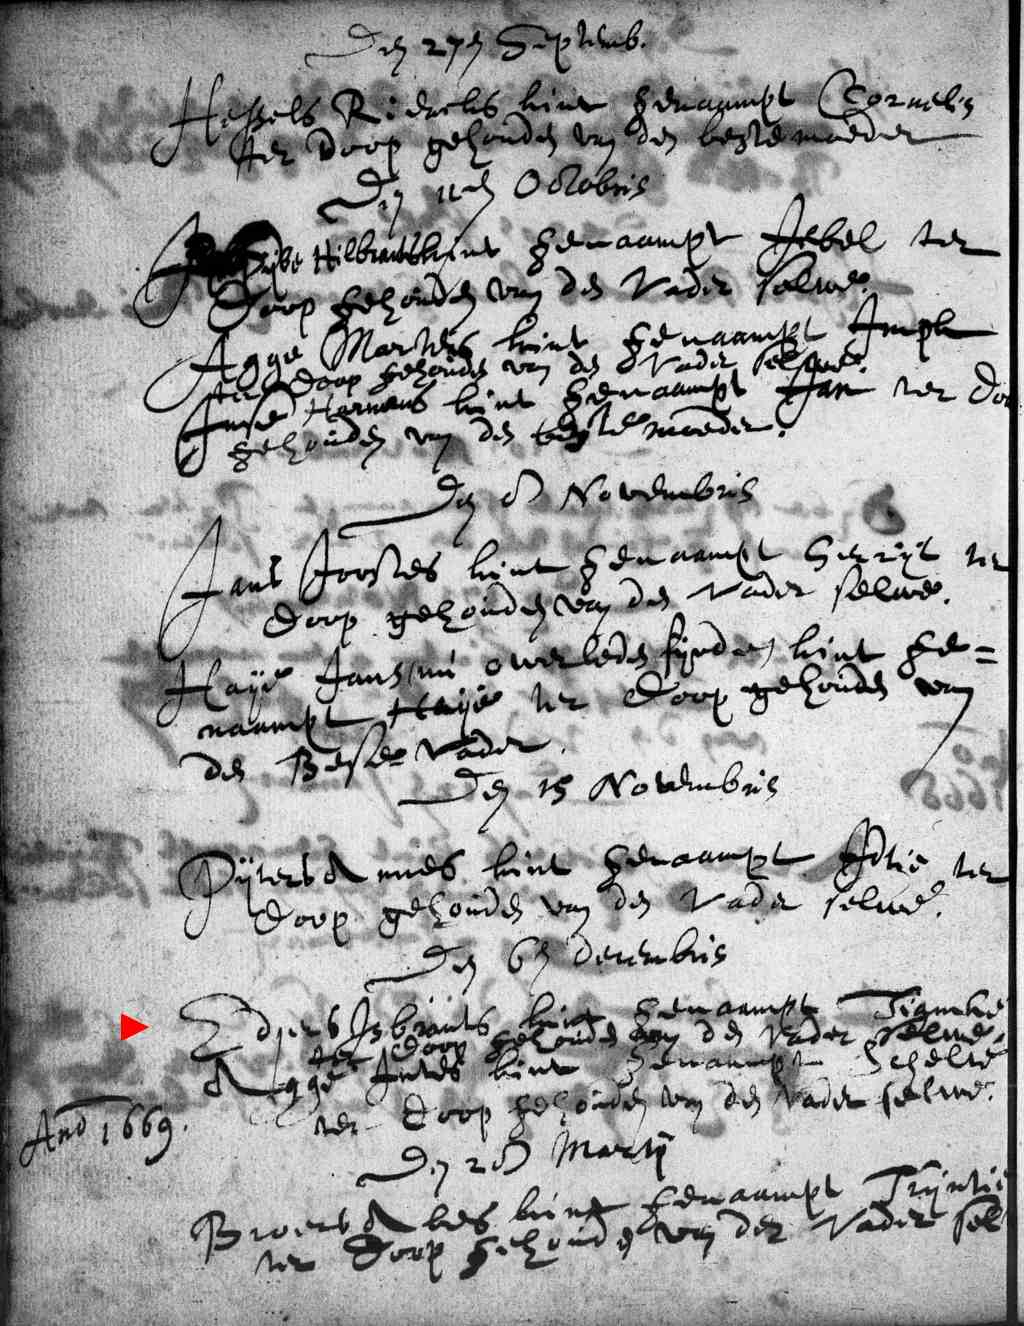 Den 27en Septemb.
Hessels Riencks kint genaampt Cornelis
ter Doop gehouden van den beste moeder
Den 11en Octobris
Hilbrants kint genaampt Jebel ter
Doop gehouden van den Vader selve.
Agge Martens kint genaampt
ter Doop gehouden van den Vader selve.
Jense Harmens kint genaampt Jan ter Doo
gehouden van den beste moeder.
Den 8 Novembris
Jans Joostes kint genaampt Gerrijt ter
Doop gehouden van den Vader selve.
Haije Jans nu overleden sijnde kint ge=
naampt Haije ter Doop gehouden van
den Beste Vader.
Den 15 Novembris
Pijters Annes kint genaampt Idtie ter
Doop gehouden van den Vader selve.
Den 6en decembris
Isbrants kint genaampt
ter Doop gehouden van den Vader selve.
Agge Intes kint genaampt Schelte
ter Doop gehouden van den Vader selve.
Ano 1669.
Den 28 Martij
Broers Alles kint genaampt Trijntie
ter Doop gehouden van den Vader sel